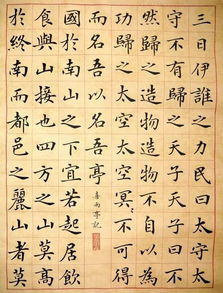 三日伊誰之力民曰太守太
守不有歸之天子天子曰不
然歸之造物造物不自以為
功歸之太空太空冥〻不可得
而名吾以名吾亭
喜雨亭記
國於南山之下宜若起居飲
食與山接也四方之山莫高
於終南而都邑之麗山者莫